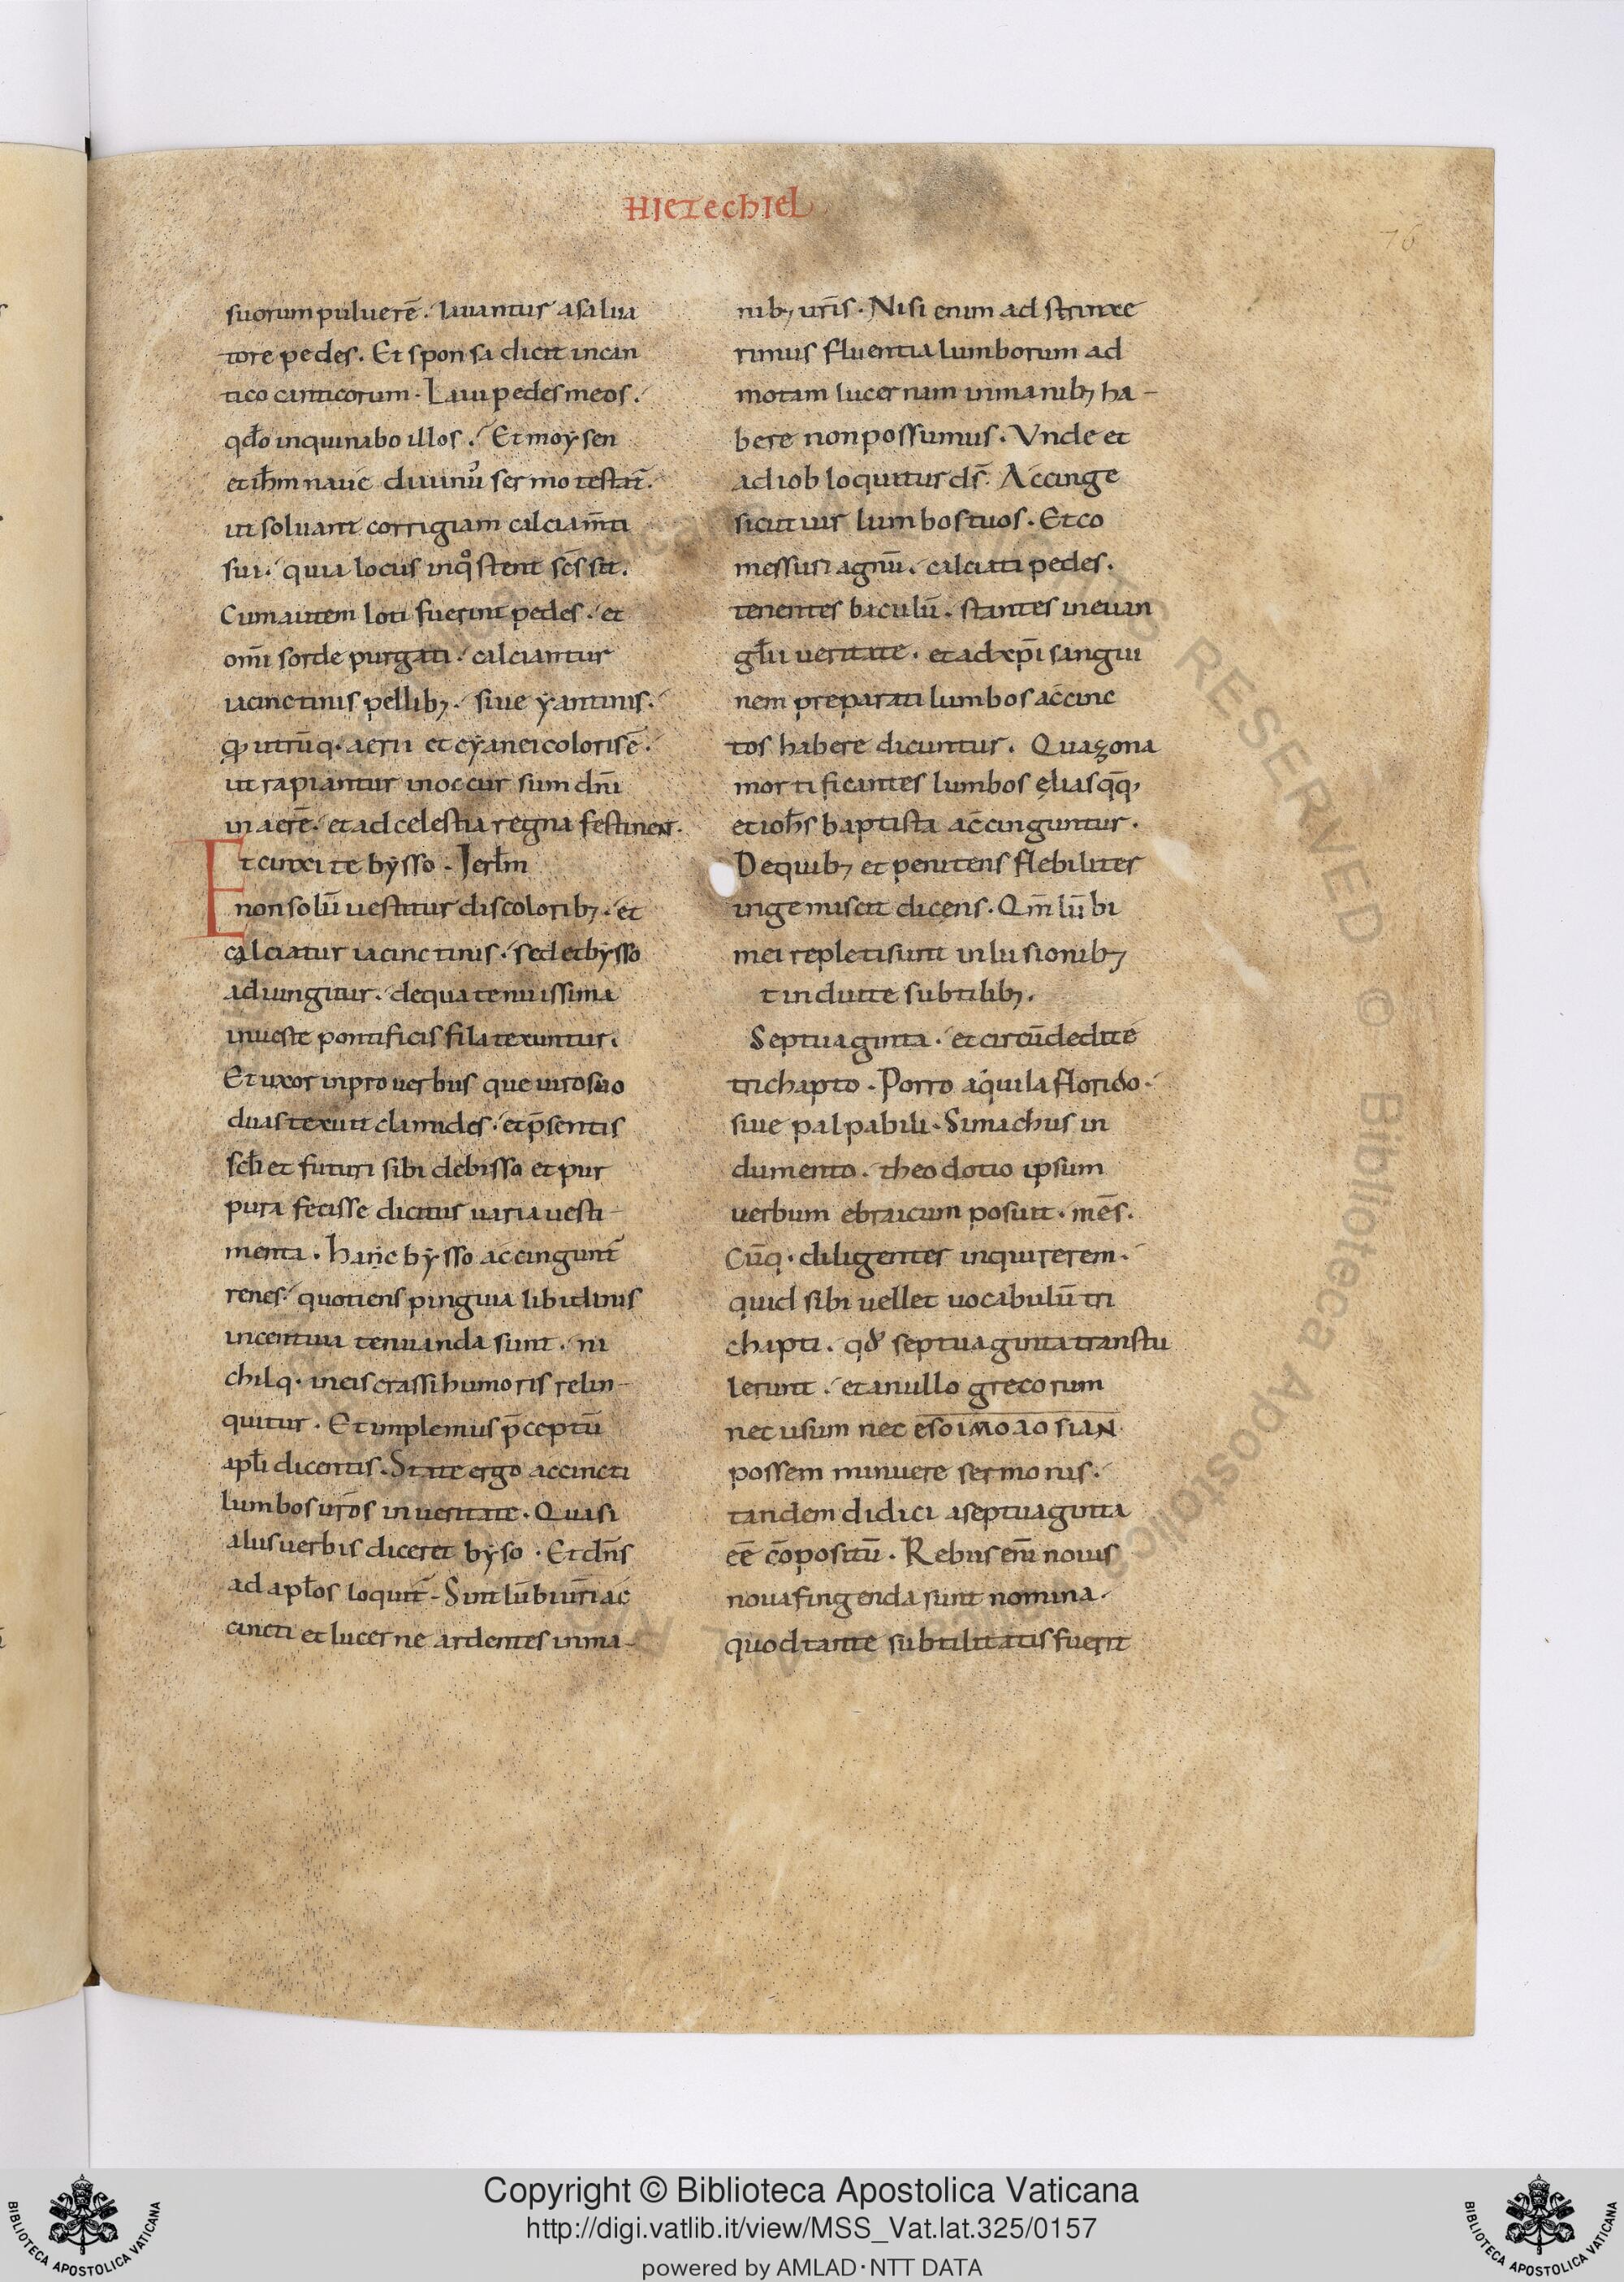 HIEZECHIEL
76
suorum puluerē. lauantur asalua
tore pedes. Et sponsa dicit incan
tico canticorum. Laui pedes meos.
qđo inquinabo illos. Et moysen
et ih̄m naue diuinu᷒ sermo testat̄.
ut soluant corrigiam calciam̄ti
sui. quia locus inqͦ stent sc̄s sit.
Cum autem loti fuerint pedes. et
om̄i sorde purgati. calciantur
iacinctinis pellibꝫ. siue yantinis.
qꝫ utrūq. aerii et cyanei coloris ē.
ut rapiantur inoccursum dn̄i
in aerē. et ad celestia regna festinent.
Et cinxi te bysso. Ierl̄m
non solū uestitur discoloribꝫ. et
calciatur iacinctinis. sed et bysso
adiungitur. de qua tenuissima
inueste pontificis fila texuntur.
Et uxor inprouerbiis que uiro suo
duas texuit clamides. et p̄sentis
sc̄li et futuri sibi debisso et pur
pura fecisse dicitur uaria uesti-
menta. hanc bysso accingunt̄
renes. quotiens pinguia libidinis
incentiua tenuanda sunt. ni
chilq. ineis crassi humoris relin-
quitur. Et implemus p̄ceptū
apl̄i dicentis. State ergo accincti
lumbos ur̄os in ueritate. Quasi
aliis uerbis diceret byso. Et dn̄s
ad apl̄os loquit̄. Sint lūbi ur̄i ac
cincti et lucerne ardentes inma-
nibꝫ ur̄is. Nisi enim ad strinxe
rimus fluentia lumborum ad
motam lucernam inmanibꝫ ha-
bere non possumus. Vnde et
ad iob loquitur ds̄. Accinge
sicut uir lumbos tuos. Et co
messuri agnū. calciati pedes.
tenentes baculū. stantes ineuan
gl̄ii ueritate. et ad xp̄i sangui
nem preparati lumbos accinc
tos habere dicuntur. Qua zona
mortificantes lumbos ęlias qq̄,
et ioh̄s baptista accinguntur.
De quibꝫ et penitens flebiliter
ingemiscit dicens. Qm̄ lūbi
mei repleti sunt inlusionibꝫ
t induite subtilibꝫ.
Septuaginta. et circūdedi te
trichapto. Porro aquila florido.
siue palpabili. Simachus in
dumento. theodotio ipsum
uerbum ebraicum posuit. mēs.
Cūq. diligenter inquirerem.
quid sibi uellet uocabulū tri
chapti. qđ septuaginta transtu
lerunt. et anullo grecorum
nec usum nec esoimoaosian
possem minuere sermonis.
tandem didici aseptuaginta
eē cōpositū. Rebus eni᷒ nouis
noua fingenda sunt nomina.
quod tante subtilitatis fuerit
Copyright © Biblioteca Apostolica Vaticana
http://digi.vatlib.it/view/MSS_Vat.lat.325/0157
powered by AMLAD·NTT DATA
BIBLIOTECA APOSTOLICA VATICANA
BIBLIOTECA APOSTOLICA VATICANA